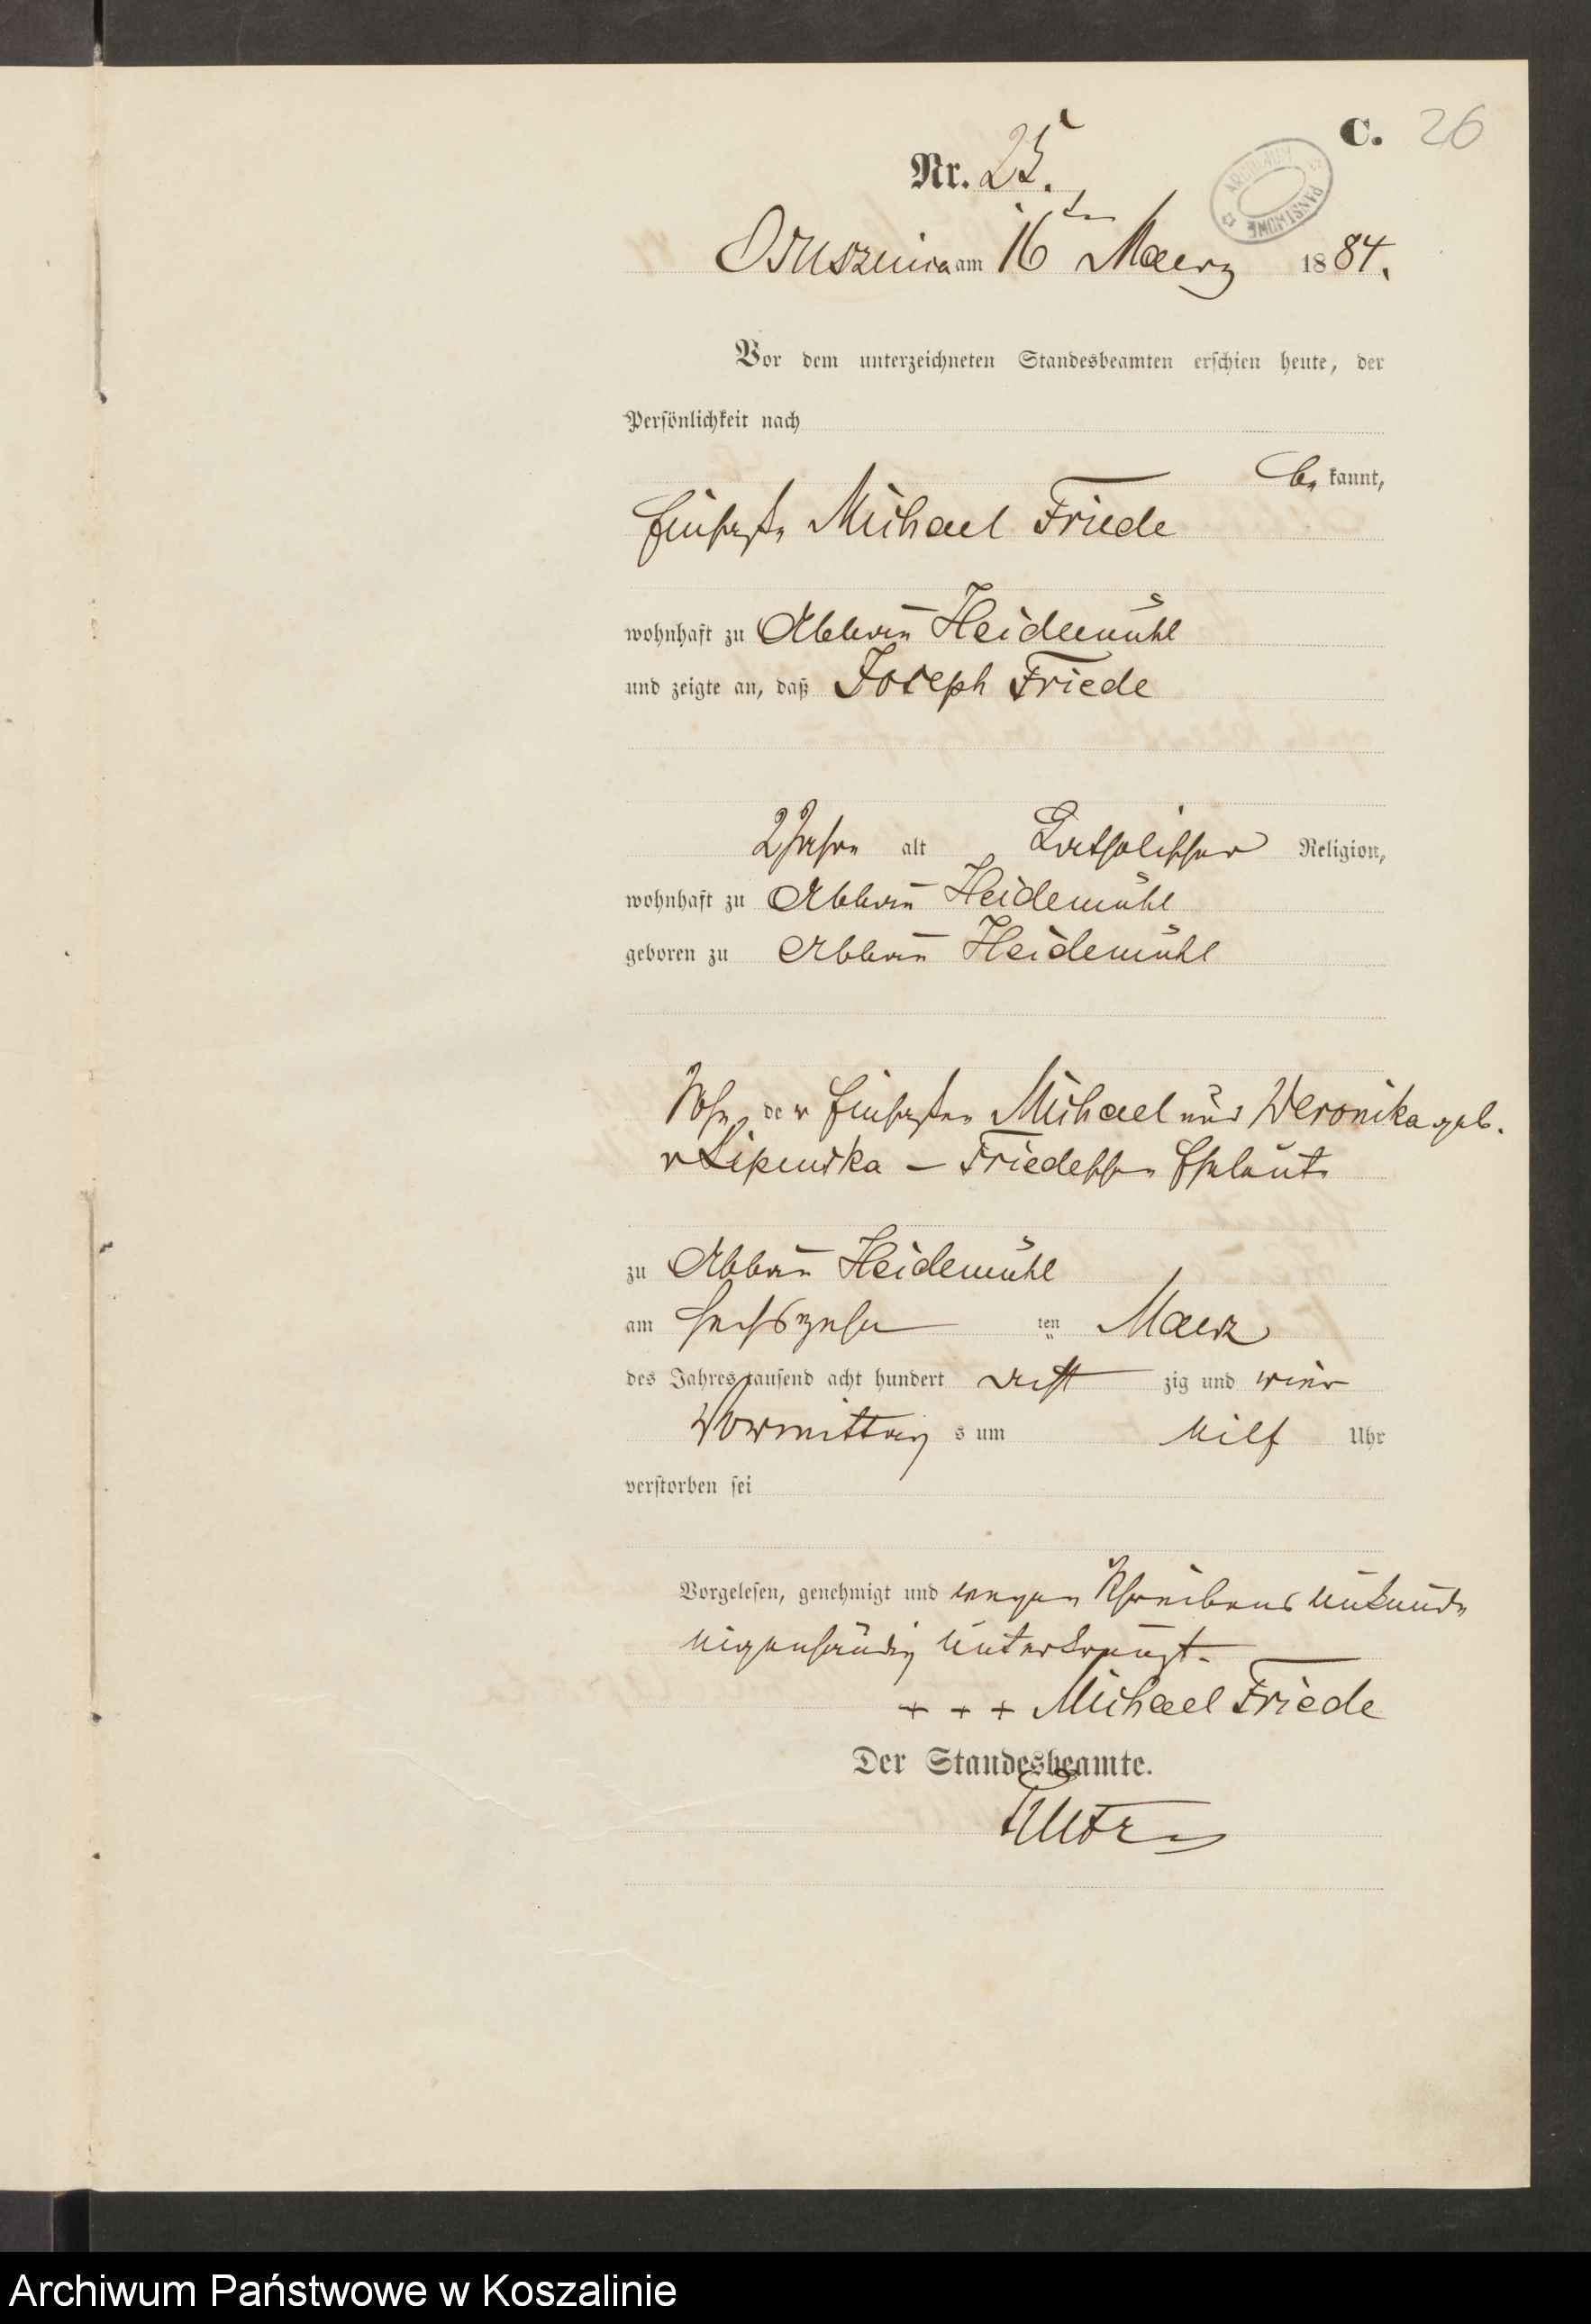 C. 26
ARCHIWUM PAŃSTWOWE
Nr. 25.
Ossuszniza am 16ten Maerz 1884.
Vor dem unterzeichneten Standesbeamten erschien heute, der
Persönlichkeit nach
be kannt,
Einsaße Michael Friede
wohnhaft zu Abbau Heidemühl
und zeigte an, daß Joseph Friede
2 Jahre alt Katholischer Religion,
wohnhaft zu Abbau Heidemühl
geboren zu Abbau Heidemühl
Sohn der Einsaßen Michael und Weronika geb.
v Lipinska – Friedeschen Eheleute
zu Abbau Heidemühl
am sechszehn ten Maerz
des Jahres tausend acht hundert acht zig und vier
Vormittag s um eilf Uhr
verstorben sei
Vorgelesen, genehmigt und wegen Schreibens Unkunde
eigenhändig Unterkreuzt.
+ + + Michael Friede
Der Standesbeamte.
Archiwum Państwowe w Koszalinie